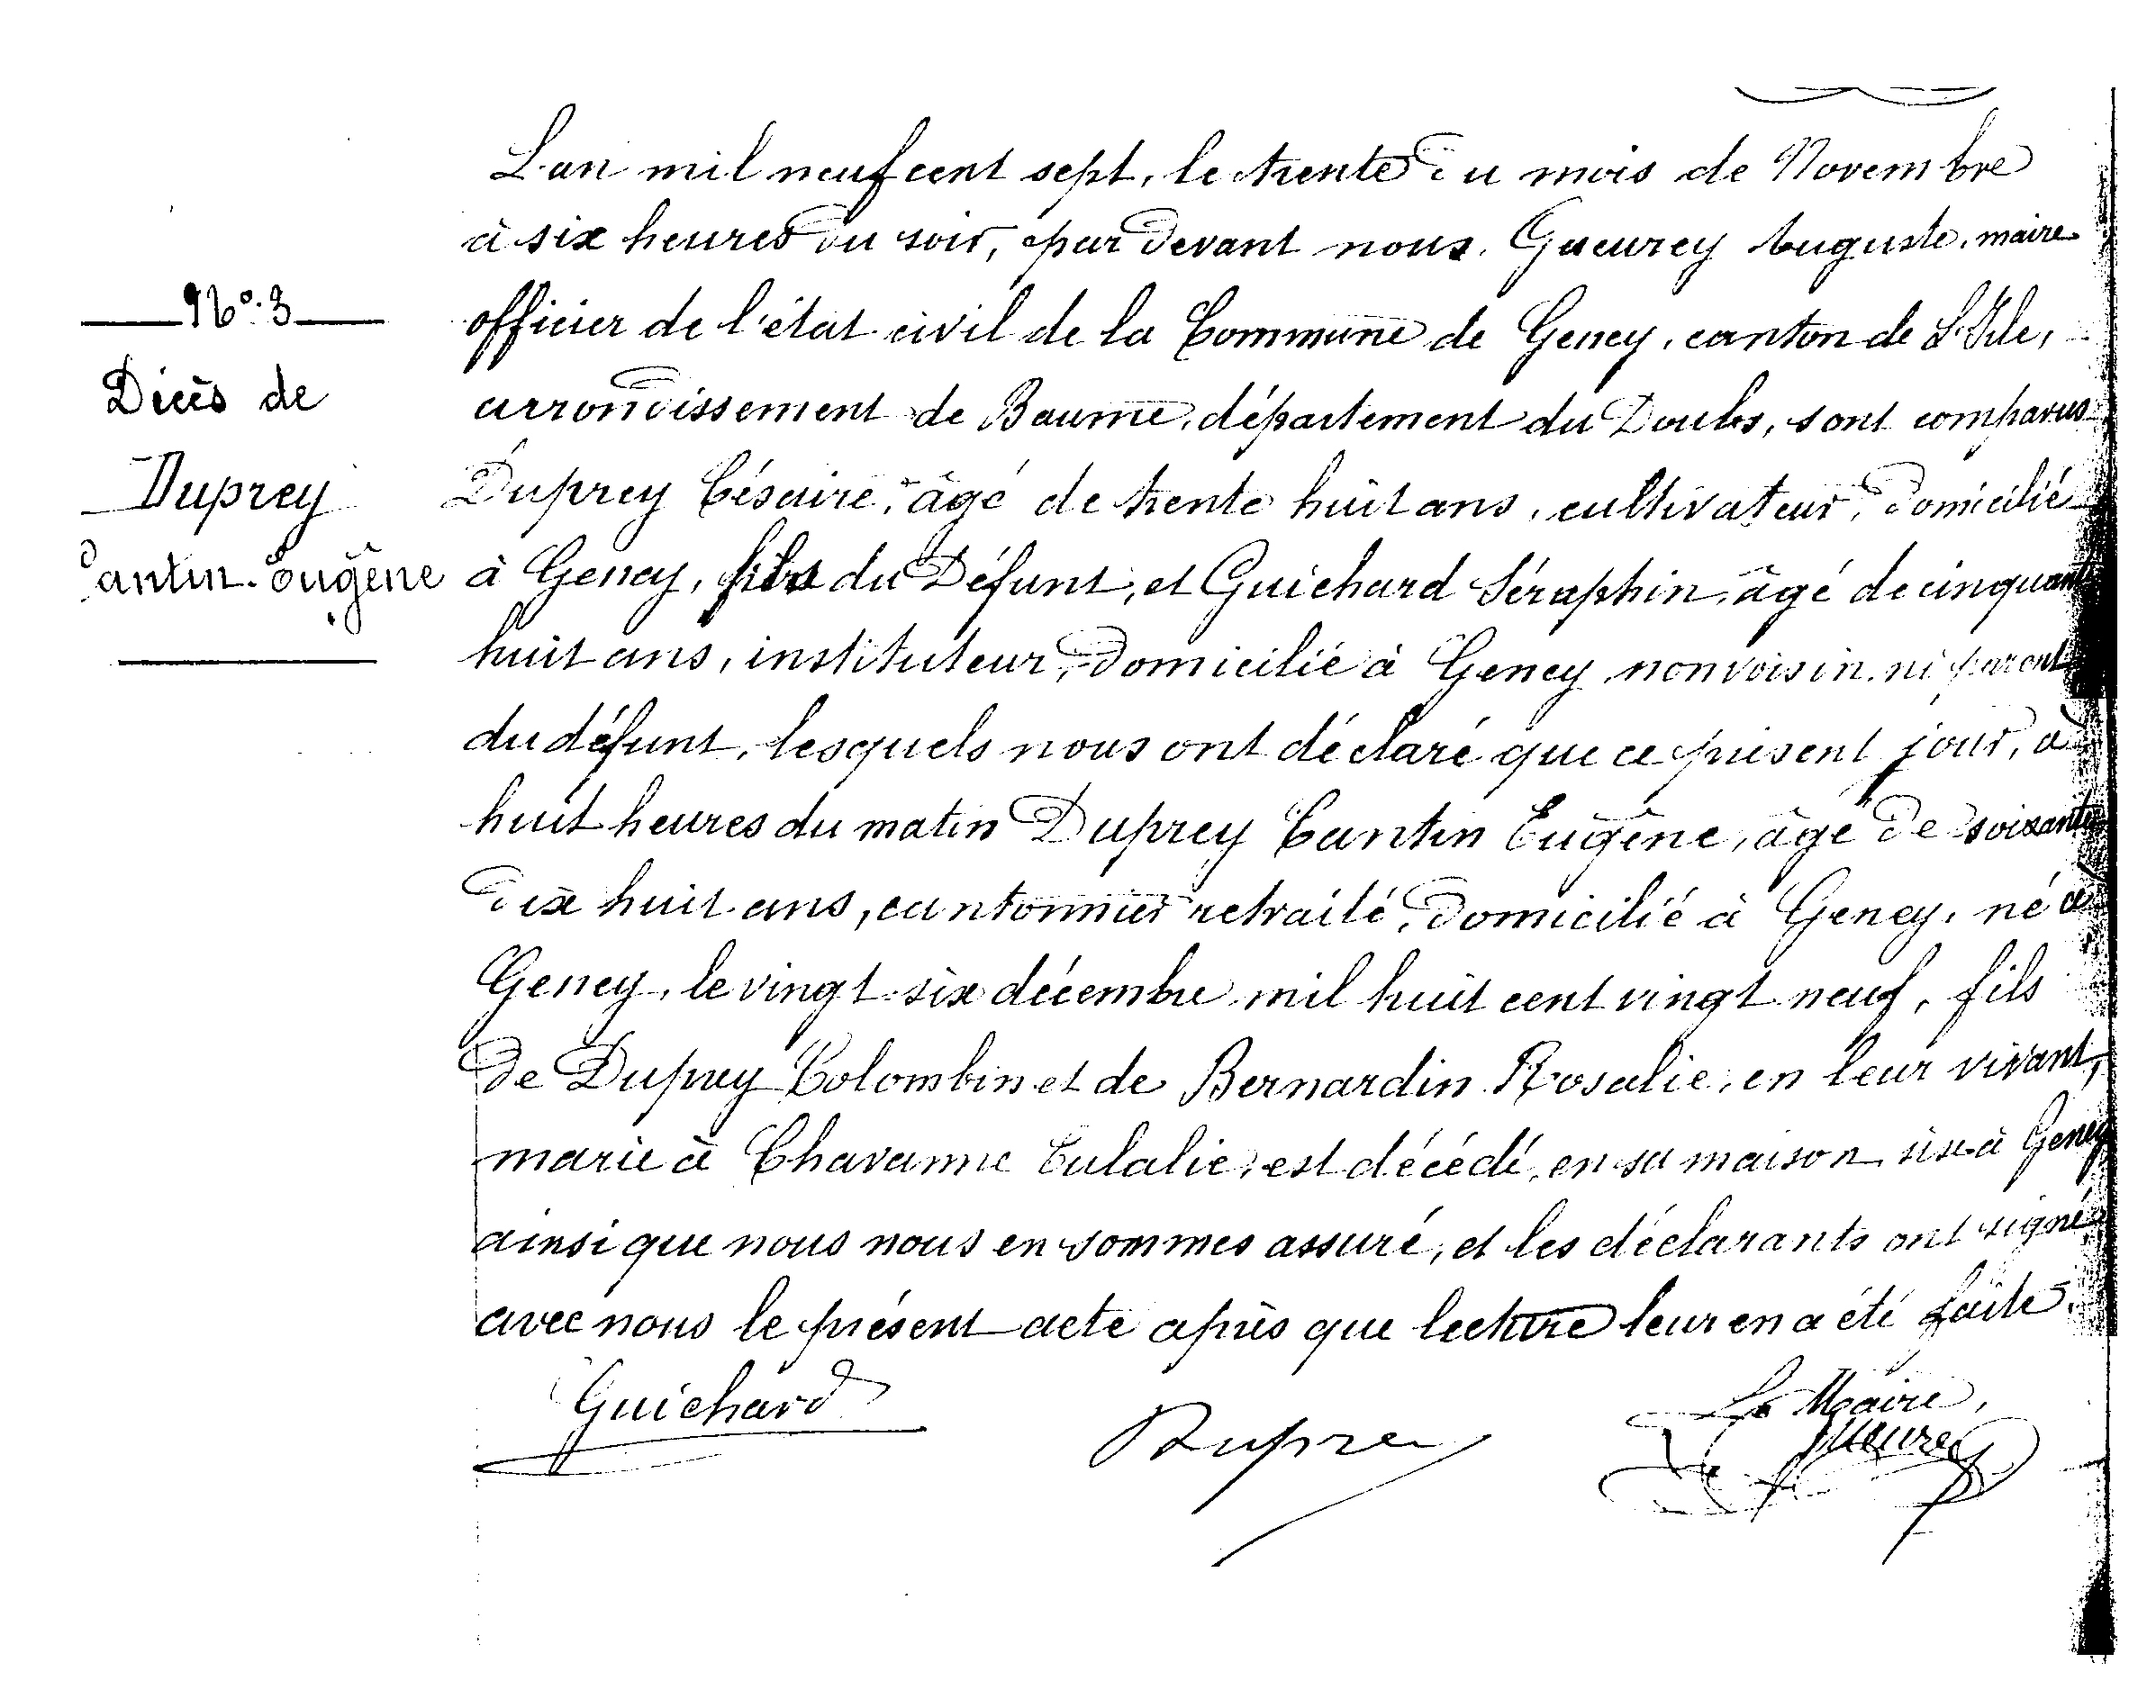 No. 3
Décès de
Duprey
Cantin Eugène
L'an mil neuf cent sept, le trente du mois de Novembre
à six heures du soir, par devant nous, Gueurey Auguste, maire
officier de l'état civil de la Commune de Geney, canton de L'Isle,
arrondissement de Baume, département du Doubs, sont comparus
Duprey Césaire, âgé de trente huit ans, cultivateur, domicilié
à Geney, fils du Défunt, et Guichard Séraphin, âgé de cinquante
huit ans, instituteur, domicilié à Geney non voisin, ni parent
du défunt, lesquels nous ont déclaré que ce présent jour, à
huit heures du matin Duprey Cantin Eugène, âgé de soixante
dix huit ans, cantonnier retraité, domicilié à Geney, né à
Geney, le vingt-six décembre mil huit cent vingt neuf, fils
de Duprey Colombin et de Bernardin Rosalie, en leur vivant,
marié à Chavanne Eulalie, est décédé, en sa maison sise à Geney
ainsi que nous nous en sommes assuré, et les déclarants ont signé
avec nous le présent acte après que lecture leur en a été faite.
Guichard
Duprey
Le Maire,
Gueurey